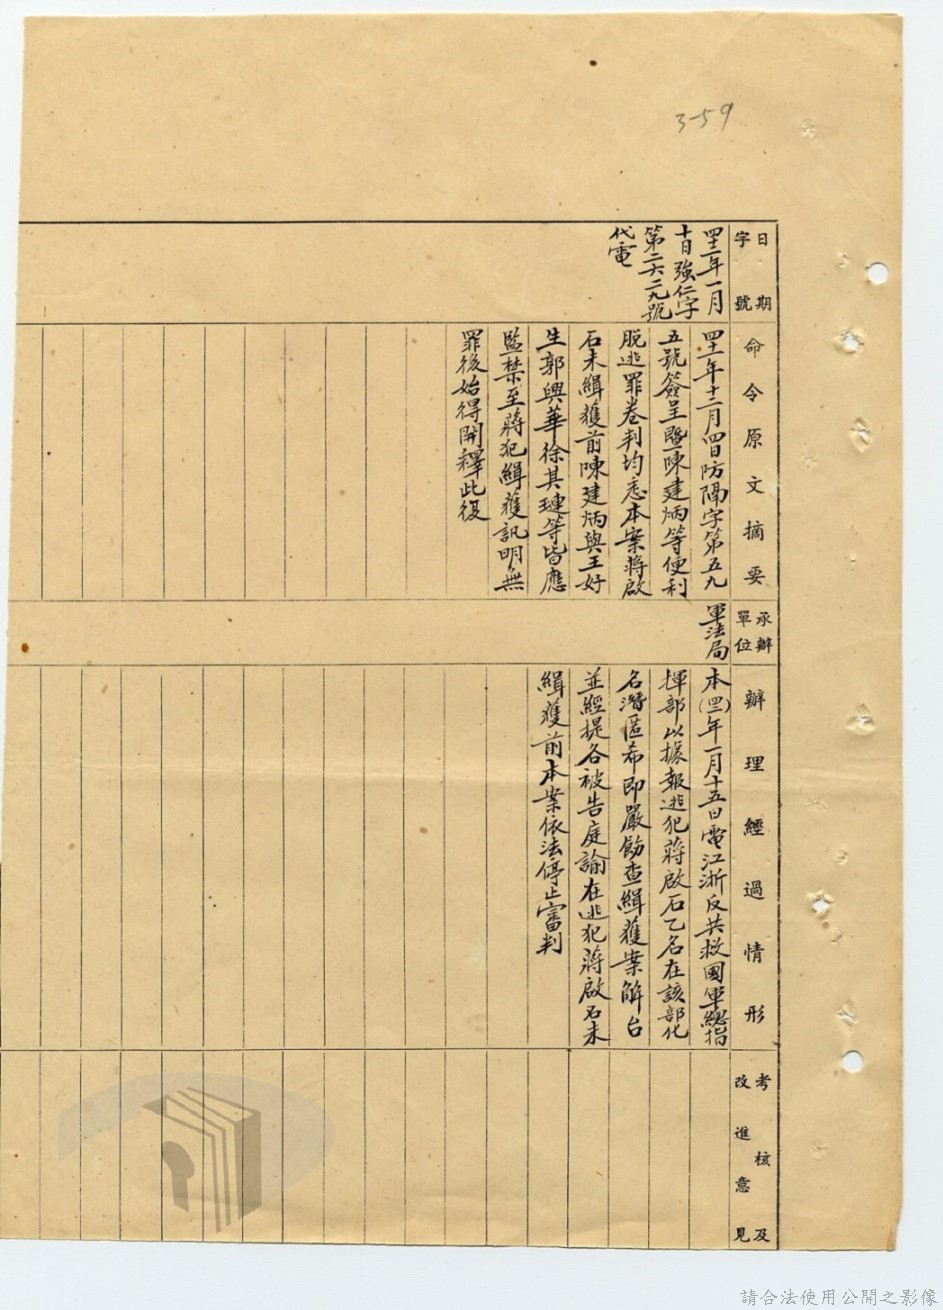 3-59
日期
字號
命令原文摘要
承辦
單位
辦理經過情形
考核及
改進意見
四二年一月
十日強仁字
第二六二九號
代電
四一年十二月四日防隔字第五九
五號簽呈暨陳建炳等便利
脫逃罪卷判均悉本案蔣啟
石未緝獲前陳建炳與王好
生郭與華徐其璉等皆應
監禁至蔣犯緝獲訊明無
罪後始得開釋此復
軍法局
本(四二)年一月十五日電江浙反共救國軍總指
揮部以據報逃犯蔣啟石乙名在該部化
名潛匿希即嚴飭查緝獲案解台
並經提各被告庭諭在逃犯蔣啟石未
緝獲前本案依法停止審判
請合法使用公開之影像